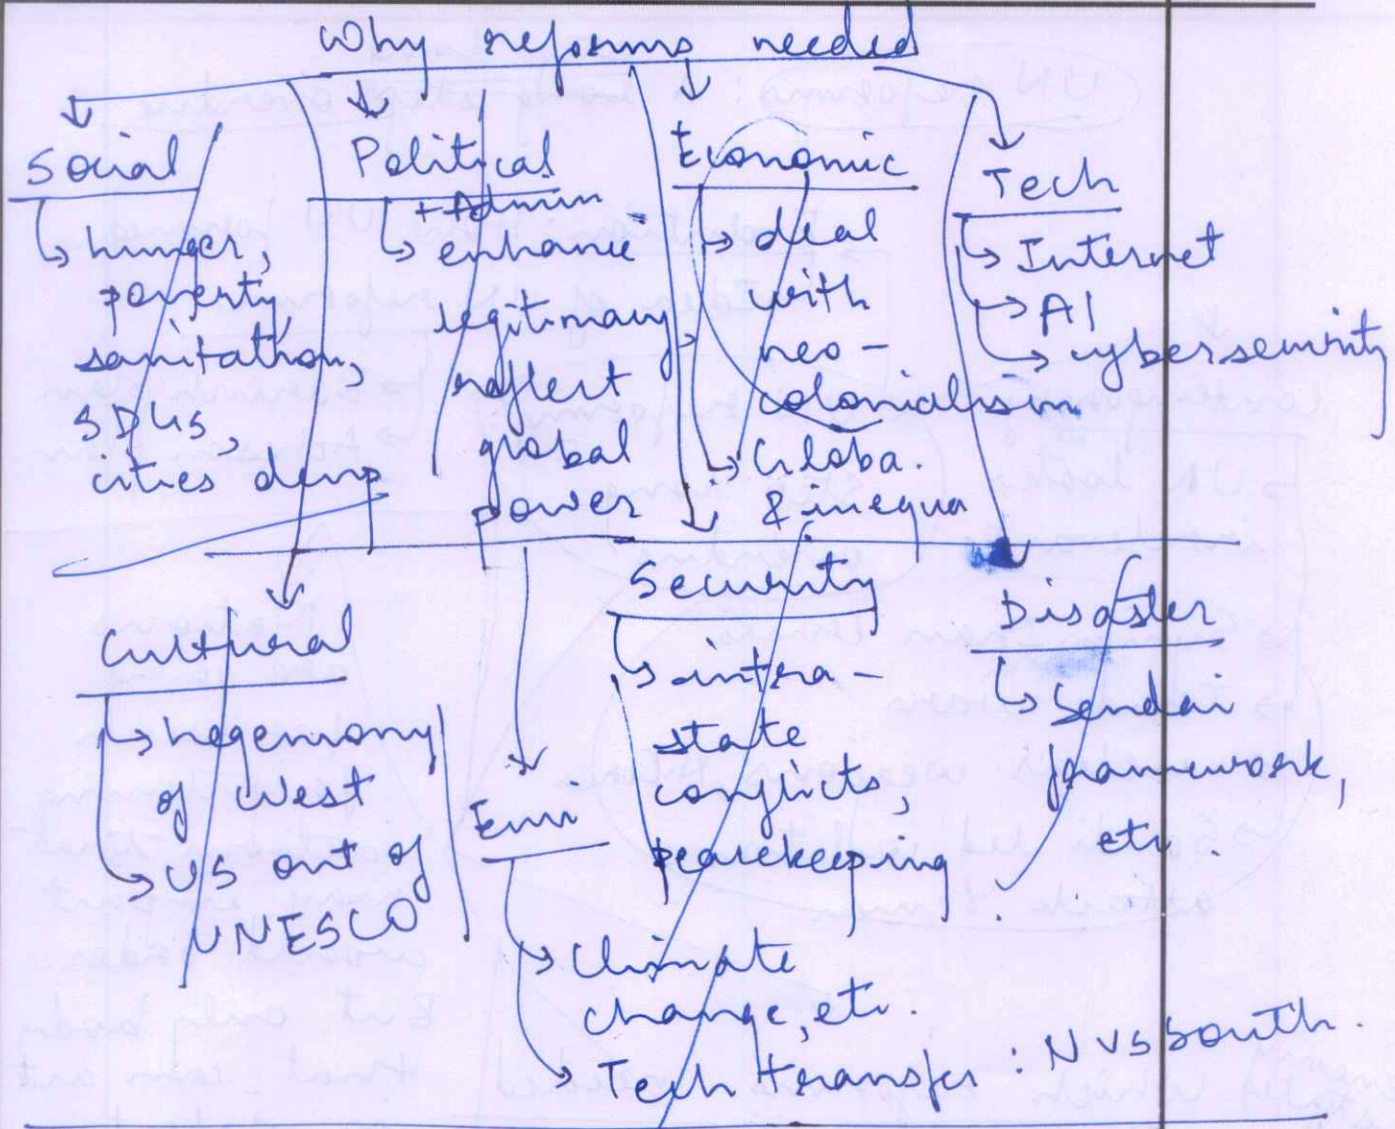 Why reforms needed
Social
↳ hunger,
poverty,
sanitation,
SDGs,
cities devp
Political
+ Admin
↳ enhance
legitimacy,
reflect
global
power
Economic
→ deal
with
neo-
colonialism
→ Globa.
& inequa
Tech
→ Internet
→ AI
→ cybersecurity
Cultural
→ hegemony
of West
→ US out of
UNESCO
Env
→ Climate
change, etc.
→ Tech transfer : N vs South.
Security
↳ intra-
state
conflicts,
peacekeeping
Disaster
↳ Sendai
framework,
etc.